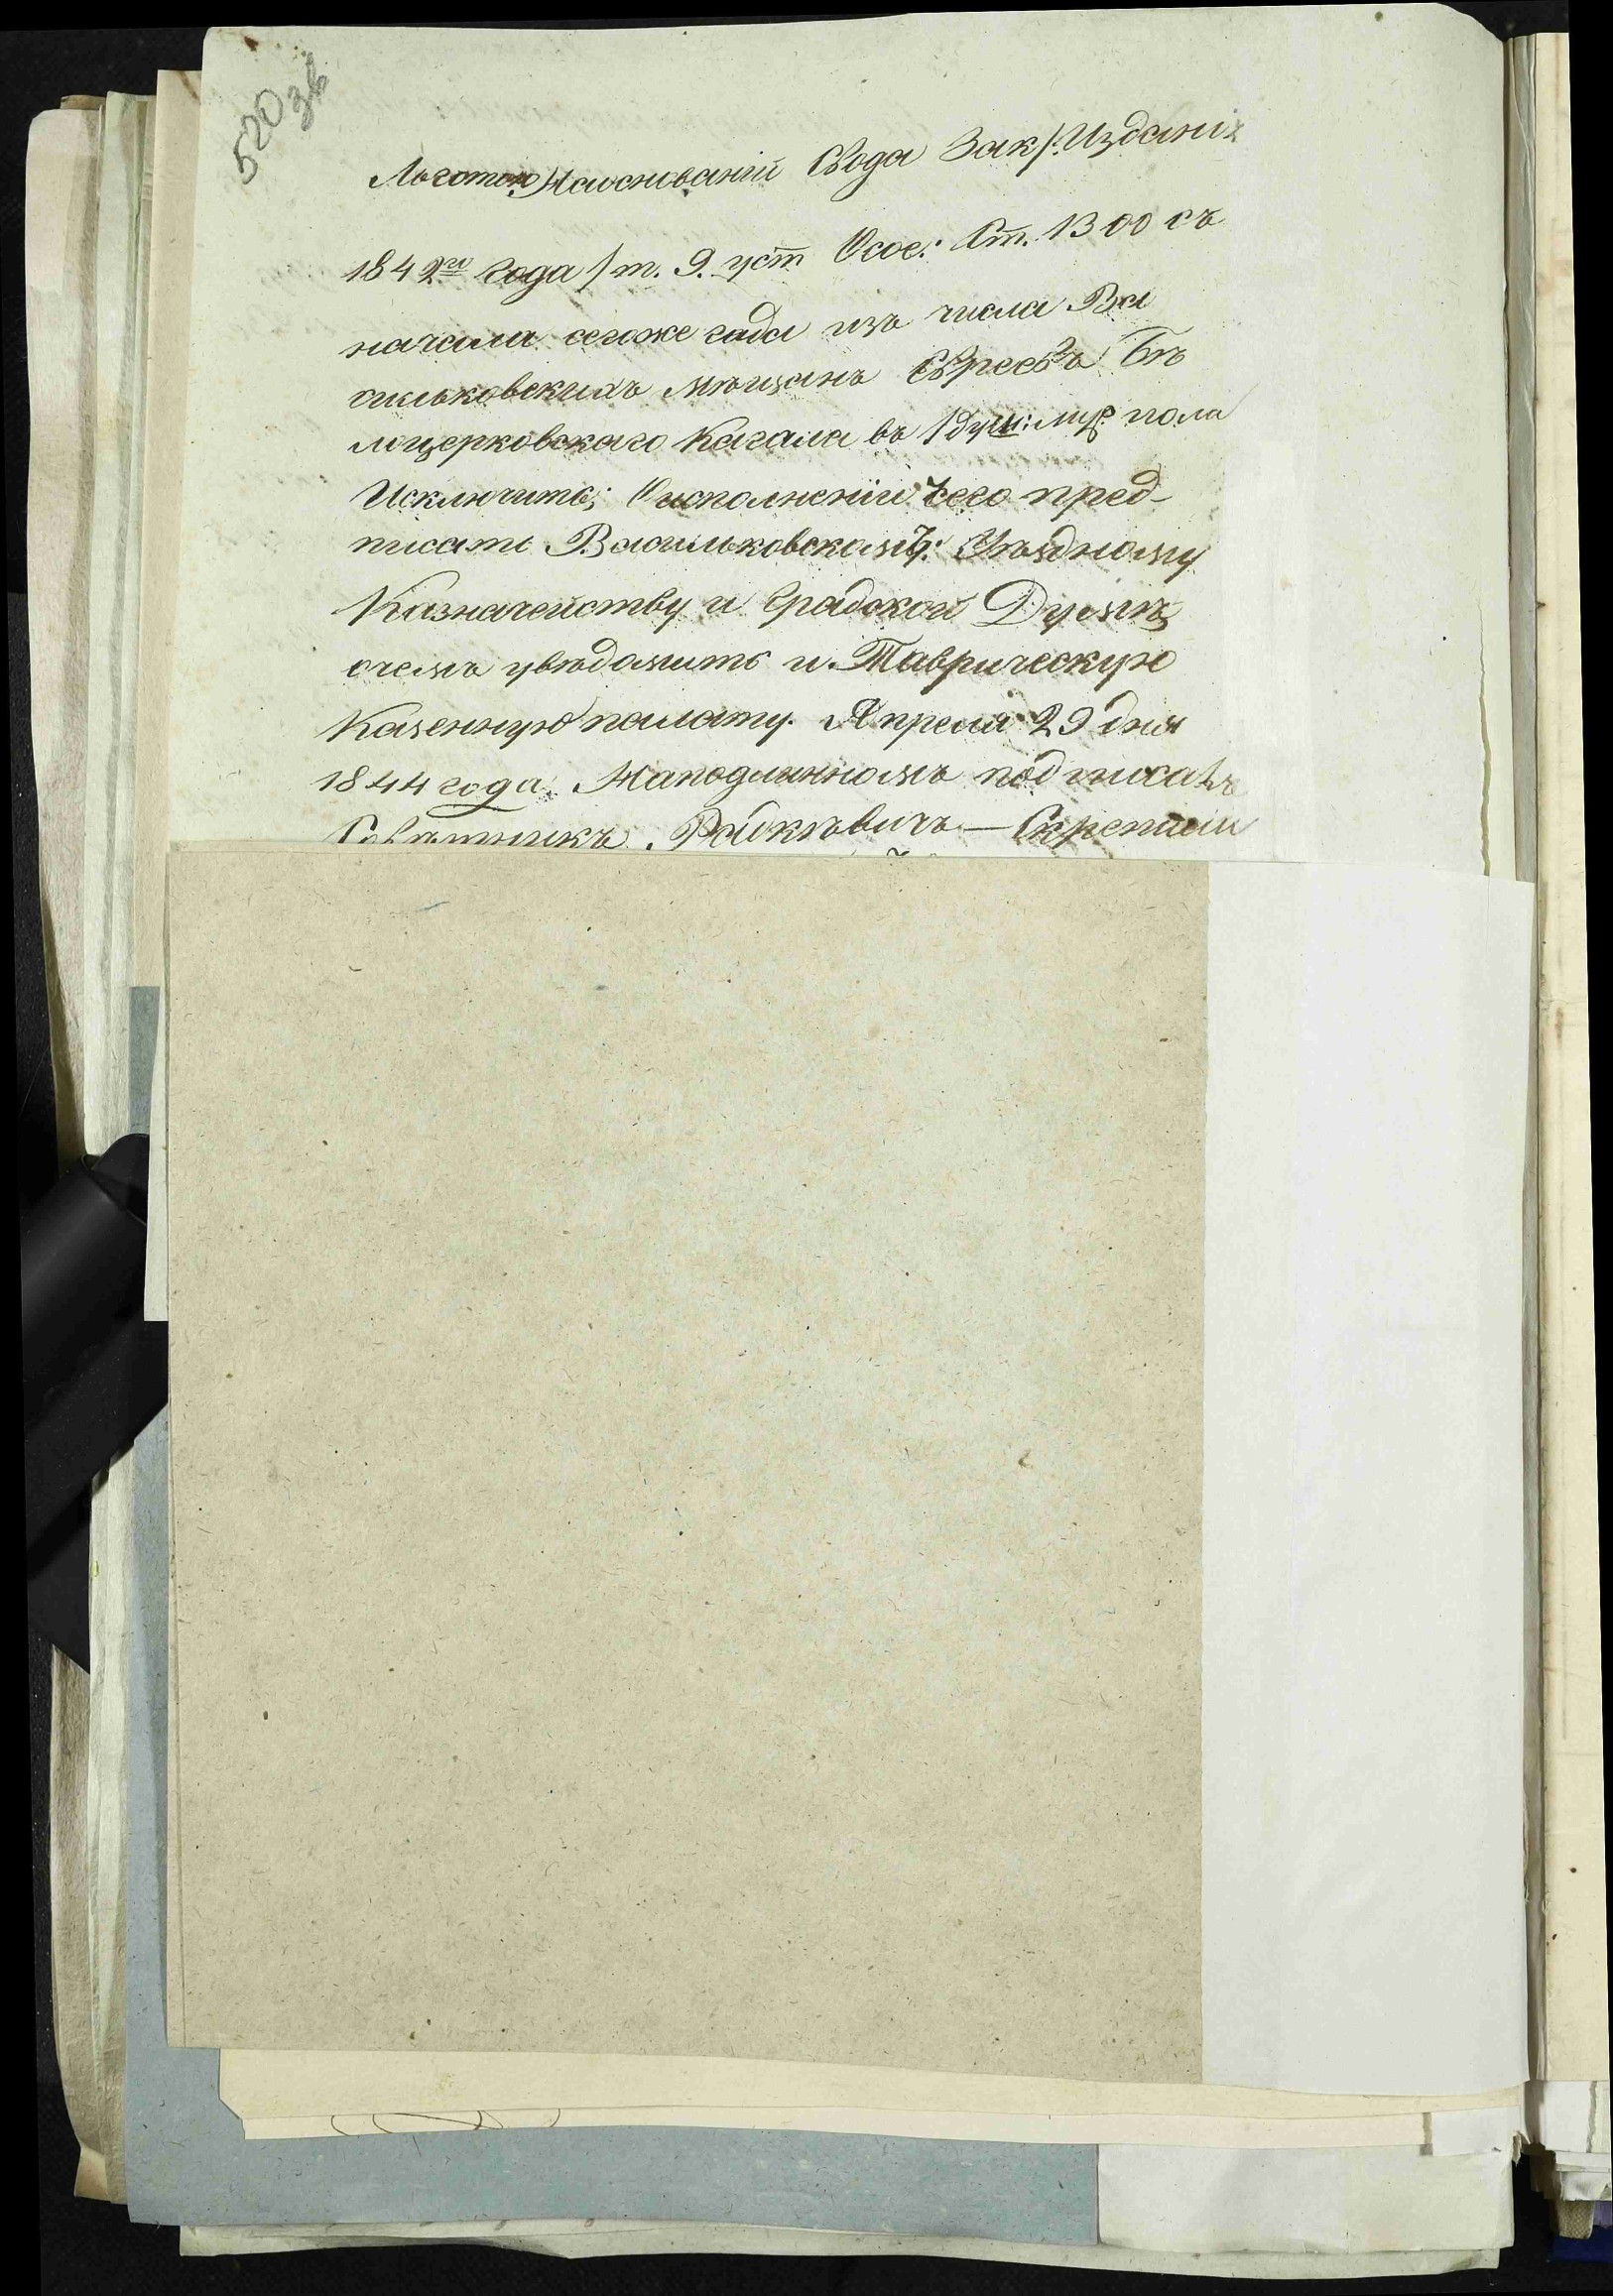 520 зв
Льготою, Наоснованіи Свода Зак /: Изданія
1842го года / т. 9. уст Осос: Ст. 1300 съ
начала сегоже года изъ числа Ва
сильковскихъ мѣщанъ Евреевъ Бѣ
лоцерковскаго Кагала въ 1 душ: муж: пола
Исключить; Оисполненіи чего пред-
писать Васильковскому: Уѣздному
Казначейству и Градской Думѣ
очемъ увѣдомить и Таврическую
Казенную палату. Апреля 29 дня
1844 года. Наподлинномъ подписалъ
Совѣтникъ Райкѣвичъ — Скрепили